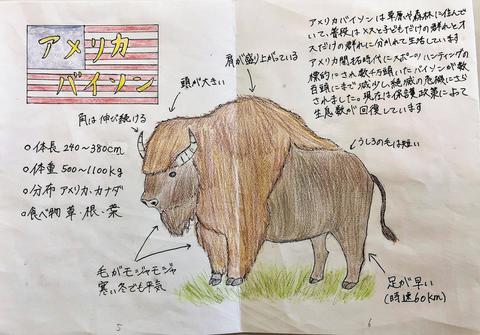 アメリカ
バイソン
アメリカバイソンは草原や森林に住んで
いて、普段はメスと子どもだけの群れとオ
スだけの群れに分かれて生活しています
アメリカ開拓時代にスポーツハンティングの
標的にされ数千万頭いたバイソンが数
百頭にまで減少し絶滅の危機にさら
されました。現在は保護政策によって
生息数が回復しています
肩が盛り上がっている
頭が大きい
角は伸び続ける
○体長 240〜380cm
○体重 500〜1100kg
○分布 アメリカ・カナダ
○食べ物 草・根・葉
うしろの毛は短い
毛がモジャモジャ
寒い冬でも平気
足が早い
(時速60km)
5
6